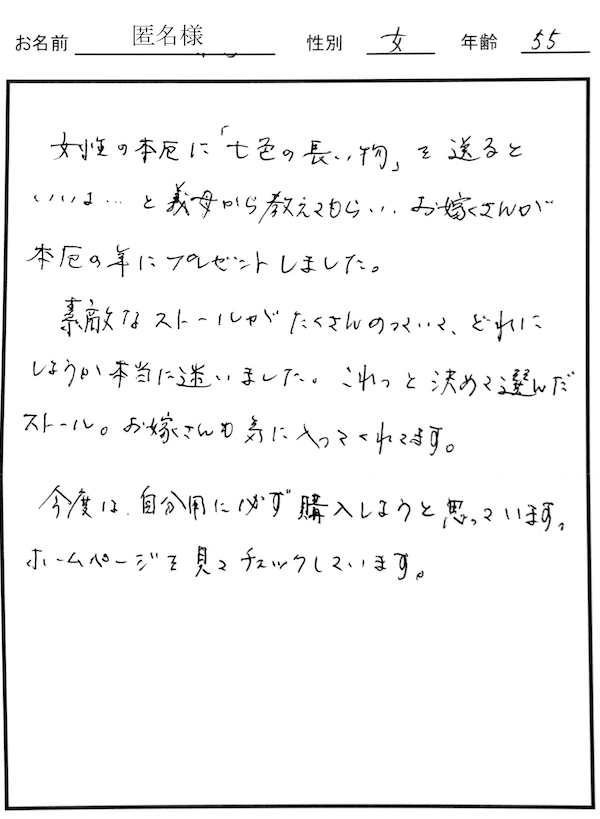 お名前 匿名様 性別 女 年齢 55
女性の本厄に「七色の長い物」を送ると
いいよ…と義母から教えてもらい、お嫁さんが
本厄の年にプレゼントしました。
素敵なストールがたくさんのっていて、どれに
しようか本当に迷いました。これっと決めて選んだ
ストール。お嫁さんも気に入ってくれてます。
今度は、自分用に必ず購入しようと思っています。
ホームページを見てチェックしています。